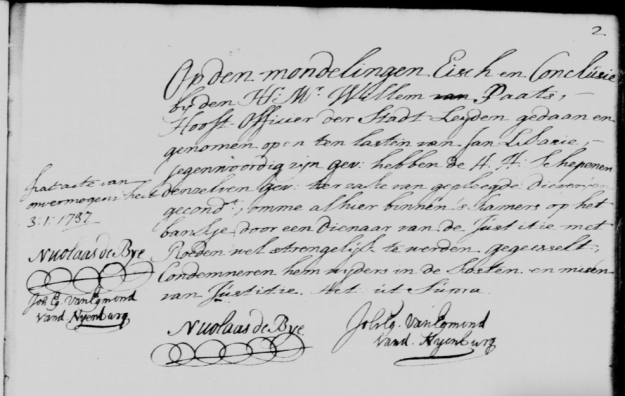 2.
Op den mondelingen Eisch en Conclusie
bij den Hr. Mr. Willem van Paats,
Hooft Officier der Stadt Leyden gedaan en
genomen op en ten lasten van Jan
Jegenwoordig zijn gev: hebben de H. H. Schepenen
denselven gev: ter zake van gepleegde Dieverijen
gecondt., omme alhier binnen 's Kamers op het
bankje door een Dienaar van de Justitie met
Roeden wel strengelijk te werden gegeesselt,
Condemneren hem wijders in de Kosten en misen
van Justitie. Act. ut Supra.
Nicolaas de Bye
Joh. Eg. van Egmond
vand. Nyenburg
fiat acte van
onvermogentheit
3:1:1737
Nicolaas de Bye
Joh. Eg. van Egmond
vand. Nyenburg